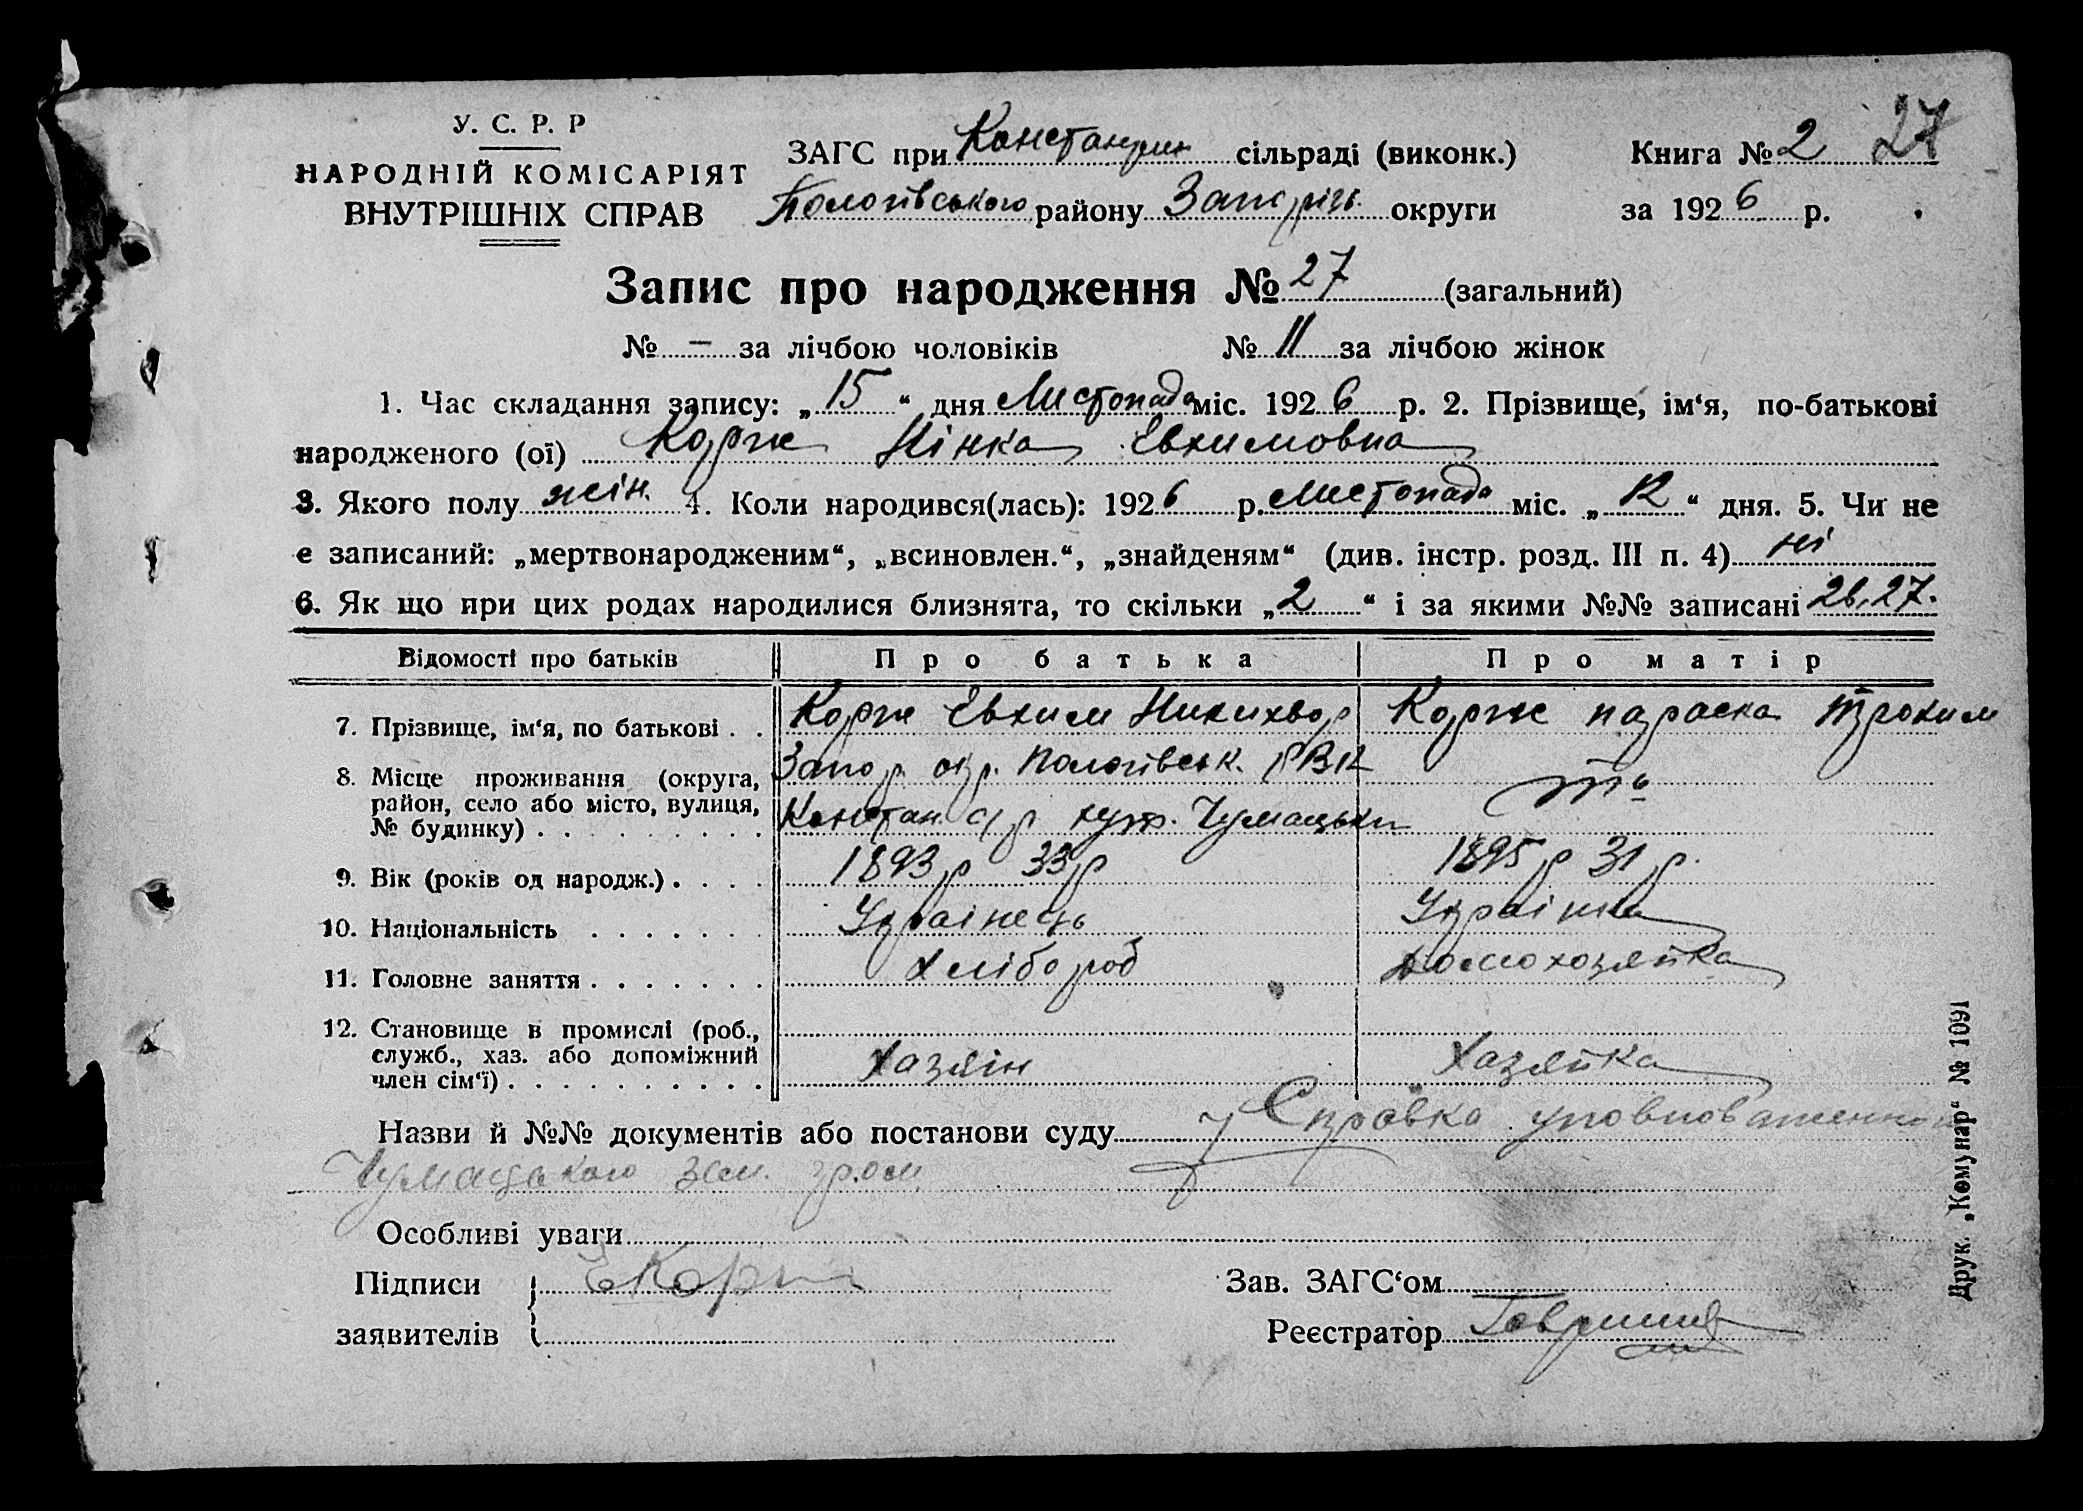 У. С. Р. Р
НАРОДНІЙ КОМІСАРІЯТ
ВНУТРІШНІХ СПРАВ
ЗАГС при Констанрин сільраді (виконк.) Книга № 2 27
Пологівського району Запорізь. округи за 1926 р.
Запис про народження № 27 (загальний)
№ – за лічбою чоловіків № 11 за лічбою жінок
1. Час складання запису: „15“ дня Листопада міс. 1926 р. 2. Прізвище, ім‘я, по-батькові
народженого (ої) Корж Нінка Евхимовна
3. Якого полу жін. 4. Коли народився(лась): 1926 р. Листопада міс. „12“ дня. 5. Чи не
є записаний: „мертвонародженим“, „всиновлен.“, „знайденям“ (див. інстр. розд. III п. 4) ні
6. Як що при цих родах народилися близнята, то скільки „2“ і за якими №№ записані 26,27.
Відомості про батьків Про батька Про матір
7. Прізвище, ім‘я, по батькові . . Корж Евхим Никихвор Корж параска Трохим
8. Місце проживання (округа, район, село або місто, вулиця, № будинку) . . . . . . . . . Запор. окр. Пологівськ. РВК
Констан. с/р хут. Чумацьки
9. Вік (років од народж.) . . . . 1893 р 33 р 1895 р 31 р.
10. Національність . . . . . . . Українець Українка
11. Головне заняття . . . . . . . Хлібороб Домохозяйка
12. Становище в промислі (роб., служб., хаз. або допоміжний член сім‘ї) . . . . . . . . . . Хазяїн Хазяйка
Назви й №№ документів або постанови суду Справка уповноваженно
Чумацького зем. гром
Особливі уваги
Підписи Е Корж Зав. ЗАГС‘ом
заявителів Реєстратор
Друк. „Комунар“ № 1091